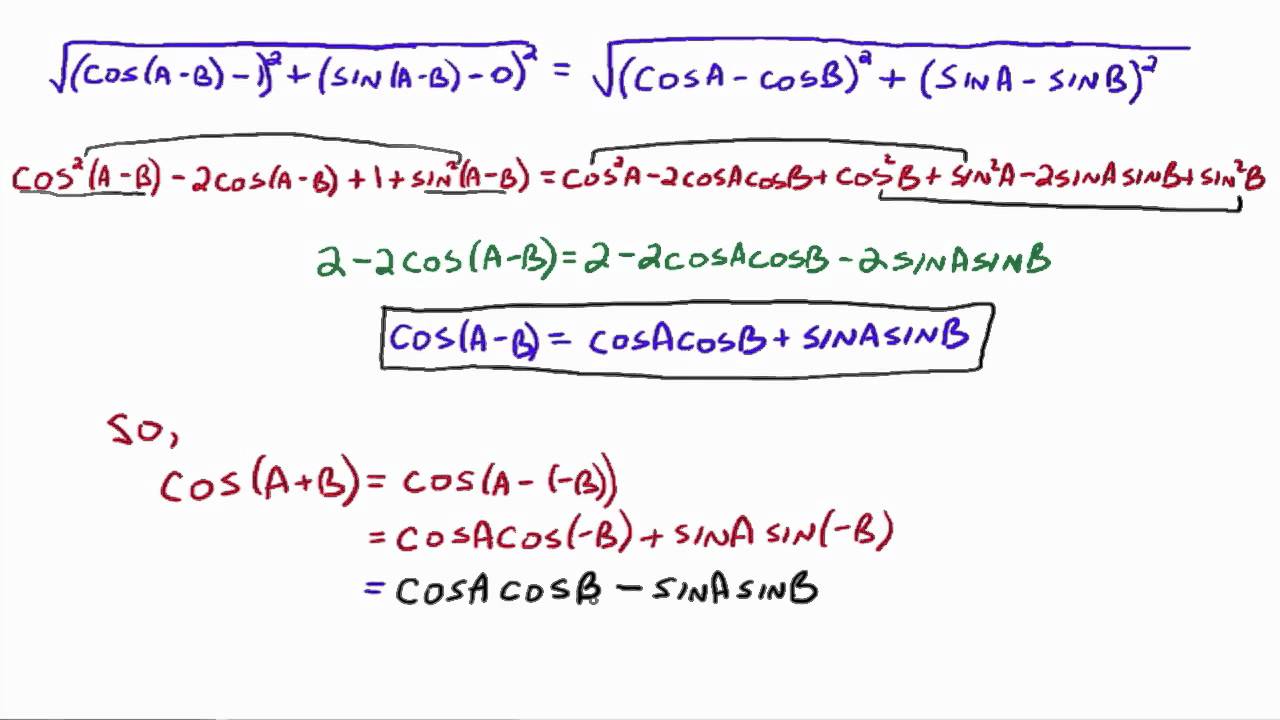 √(cos(A-B)-1)² + (sin(A-B)-0)² = √(cosA - cosB)² + (sinA - sinB)²
cos²(A-B) - 2cos(A-B) + 1 + sin²(A-B) = cos²A - 2cosAcosB + cos²B + sin²A - 2sinAsinB + sin²B
2 - 2cos(A-B) = 2 - 2cosAcosB - 2sinAsinB
cos(A-B) = cosAcosB + sinAsinB
so,
cos(A+B) = cos(A-(-B))
= cosAcos(-B) + sinAsin(-B)
= cosAcosB - sinAsinB